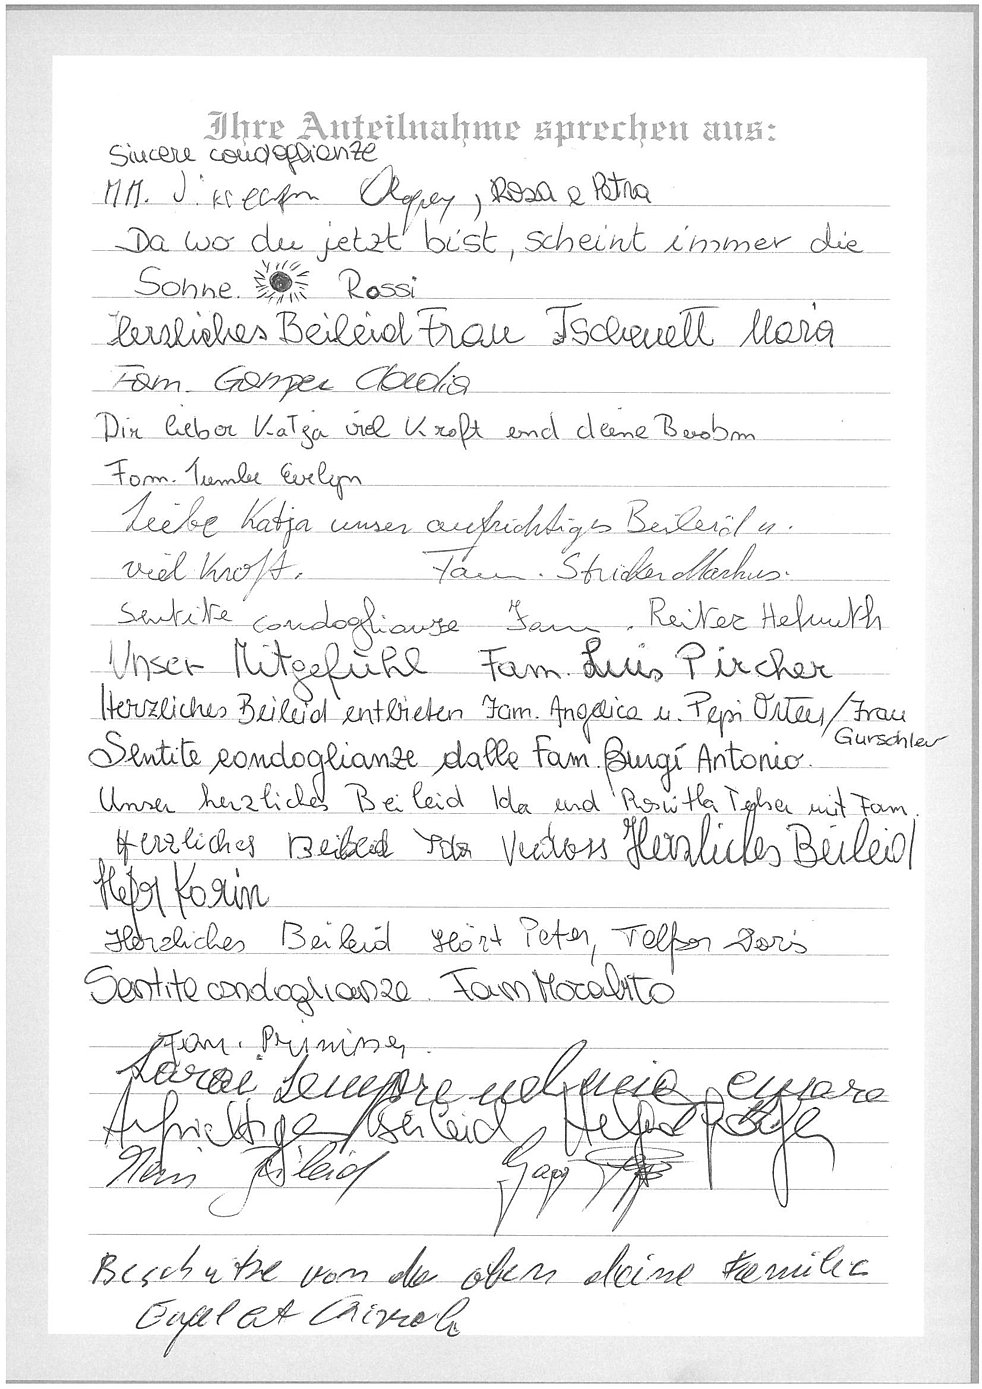 Ihre Anteilnahme sprechen aus:
Sincere condoglianze
MM. , Rosa e Petra
Da wo du jetzt bist, scheint immer die
Sonne. Rossi
Herzliches Beileid Frau Tschenett Maria
Fam. Gamper Claudia
Dir lieber Katja viel Kraft und deine
Fam. Evelyn
Liebe Katja unser aufrichtiges Beileid u.
viel Kraft. Fam. Stricker Markus.
Sentite condoglianze Fam. Reiter Helmuth
Unser Mitgefühl Fam. Luis Pircher
Herzliches Beileid entbieten Fam. Angelica u. Pepi / Frau
Gurschler
Sentite condoglianze dalle Fam. Burgi Antonio.
Unser herzliches Beileid Ida und Roswitha mit Fam.
Herzliches Beileid Ida Herzliches Beileid
Karin
Herzliches Beileid Peter, Telfser Doris
Sentite condoglianze Fam Mocabito
Fam.
Sarai sempre nel mio cuore
Beileid
Beileid
Beschütze von da oben deine Familie